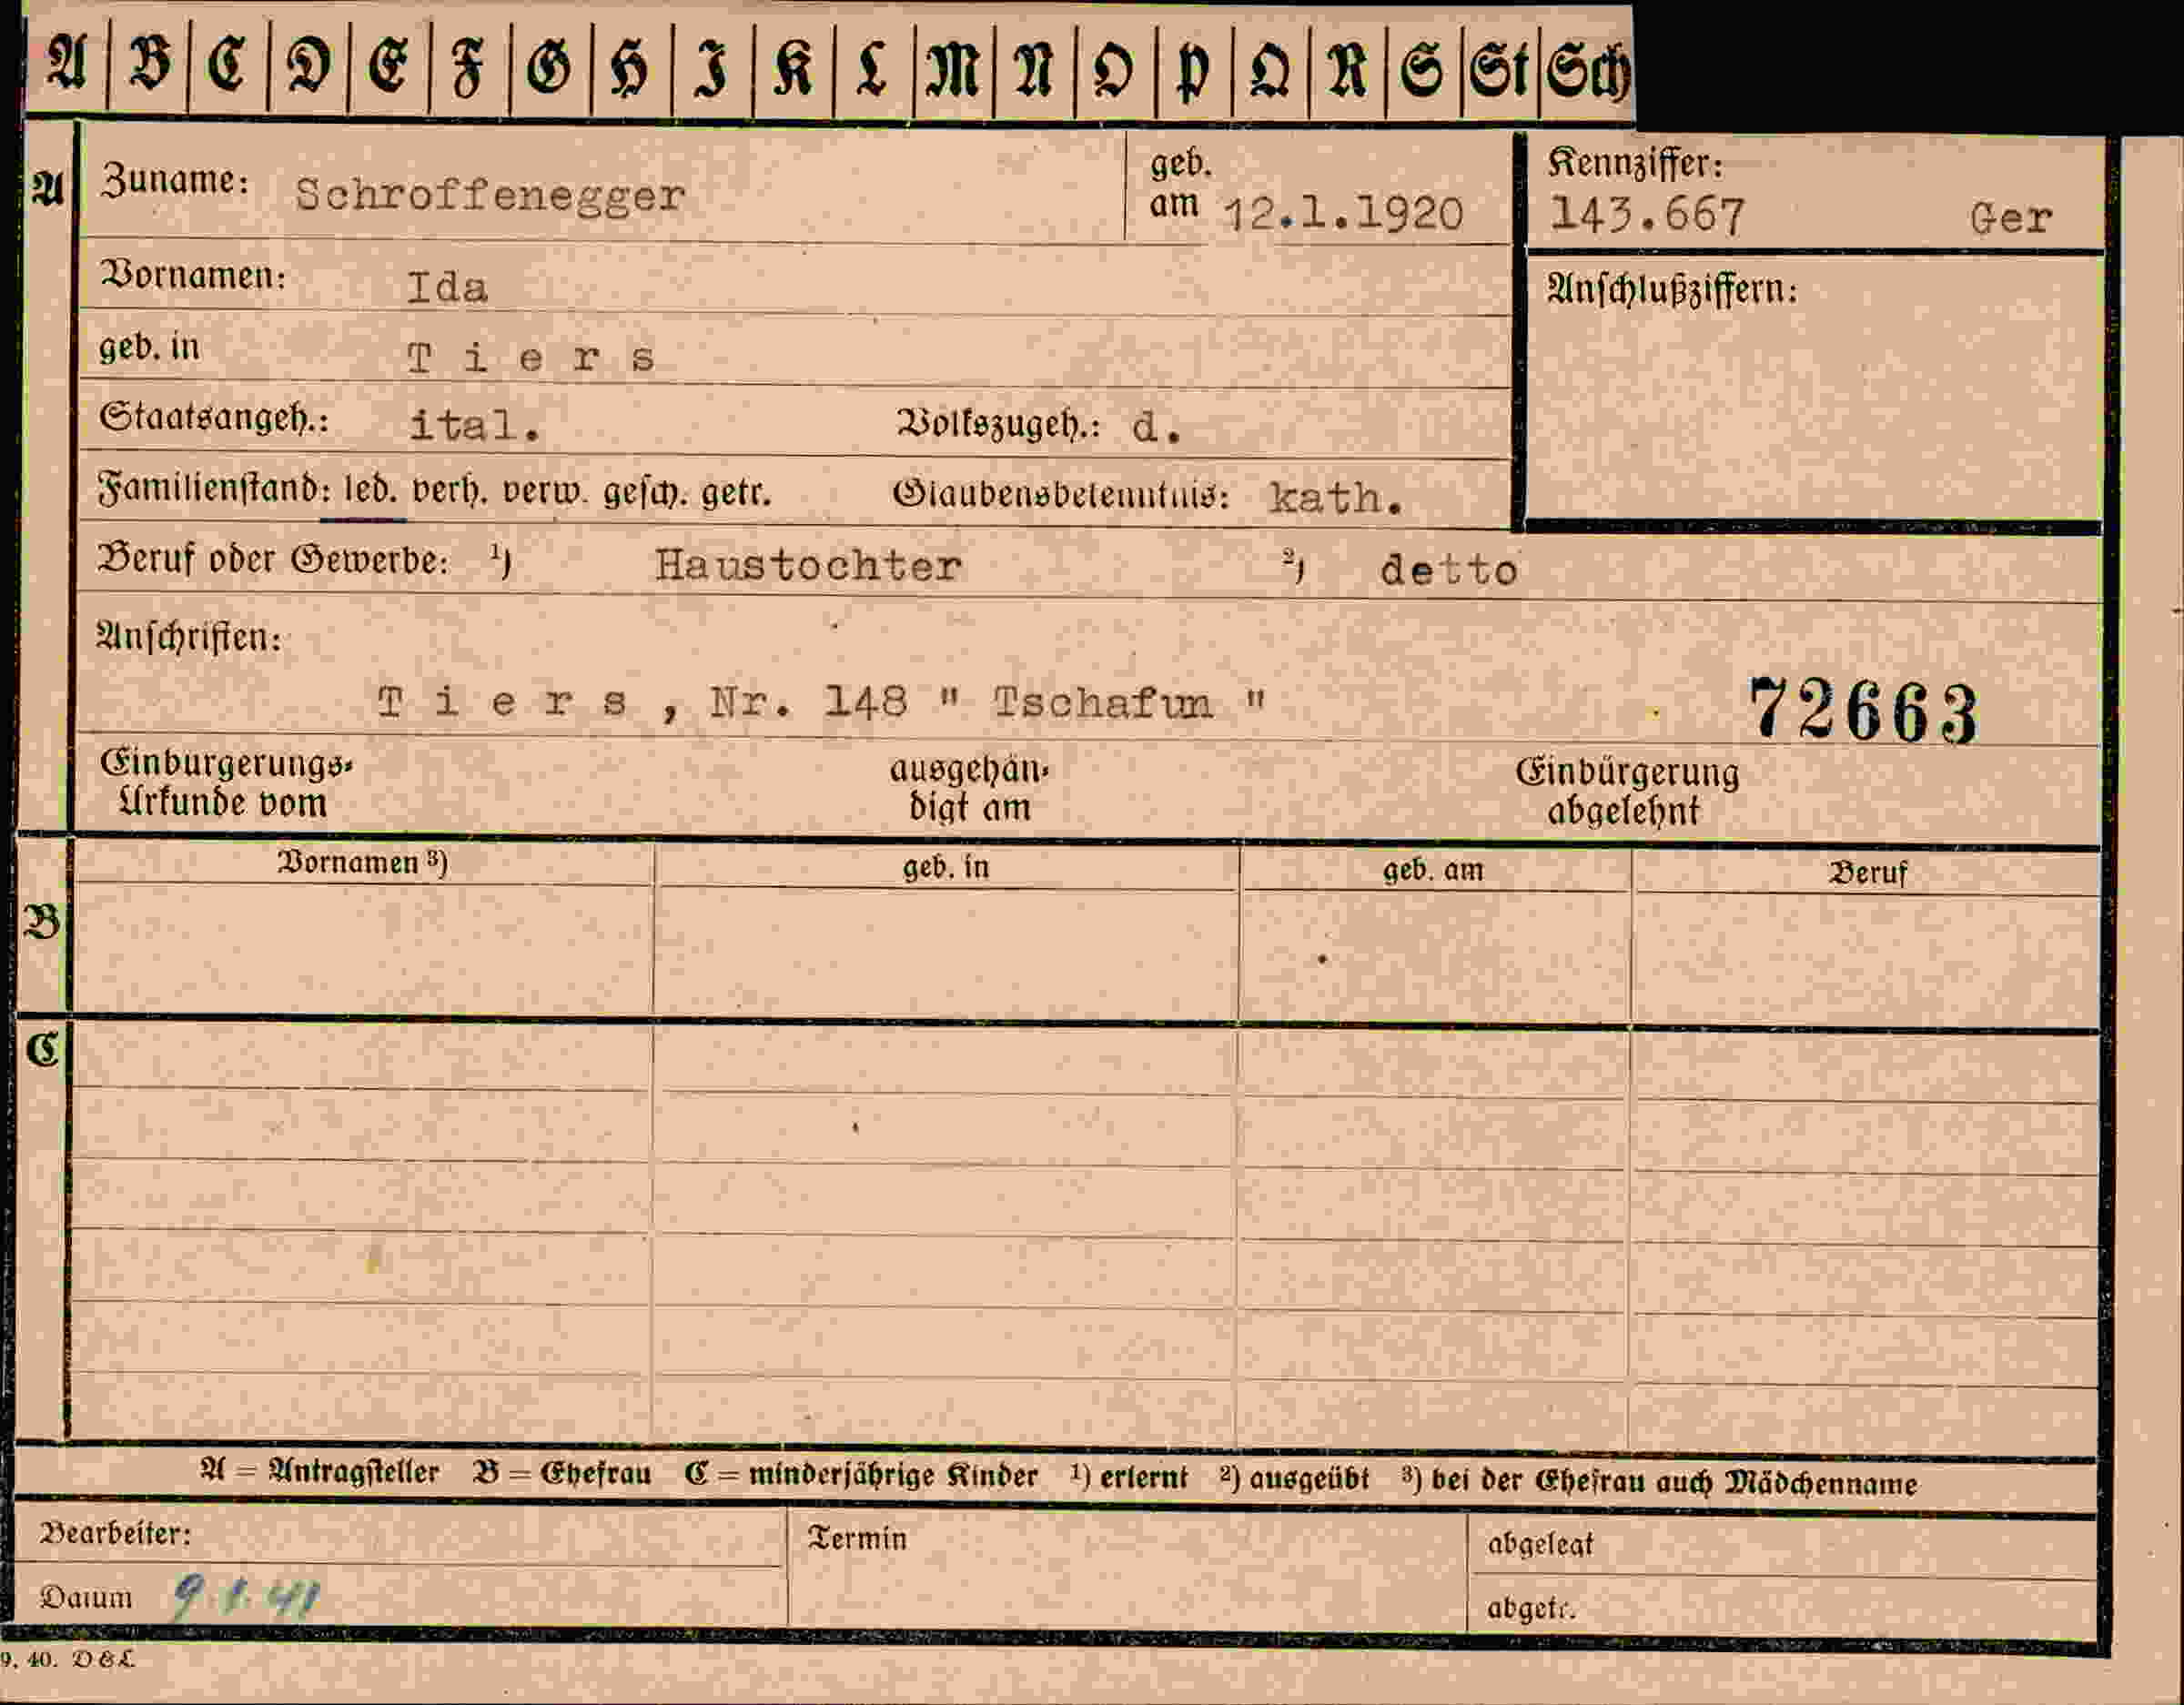 A B C D E F G H I K L M N O P Q R S St Sch
A Zuname: Schroffenegger geb. am 12.1.1920 Kennziffer: 143.667 Ger
Vornamen: Ida Anschlußziffern:
geb. in T i e r s
Staatsangeh.: ital. Volkszugeh.: d.
Familienstand: led. verh. verw. gesch. getr. Glaubensbekenntnis: kath.
Beruf oder Gewerbe: ¹) Haustochter ²) detto
Anschriften:
T i e r s , Nr. 148 " Tschafun " 72663
Einbürgerungs- ausgehän- Einbürgerung
Urkunde vom digt am abgelehnt
Vornamen ³) geb. in geb. am Beruf
B
C
A = Antragsteller B = Ehefrau C = minderjährige Kinder ¹) erlernt ²) ausgeübt ³) bei der Ehefrau auch Mädchenname
Bearbeiter: Termin abgelegt
Datum 9. 1. 41 abgetr.
9. 40. D&L